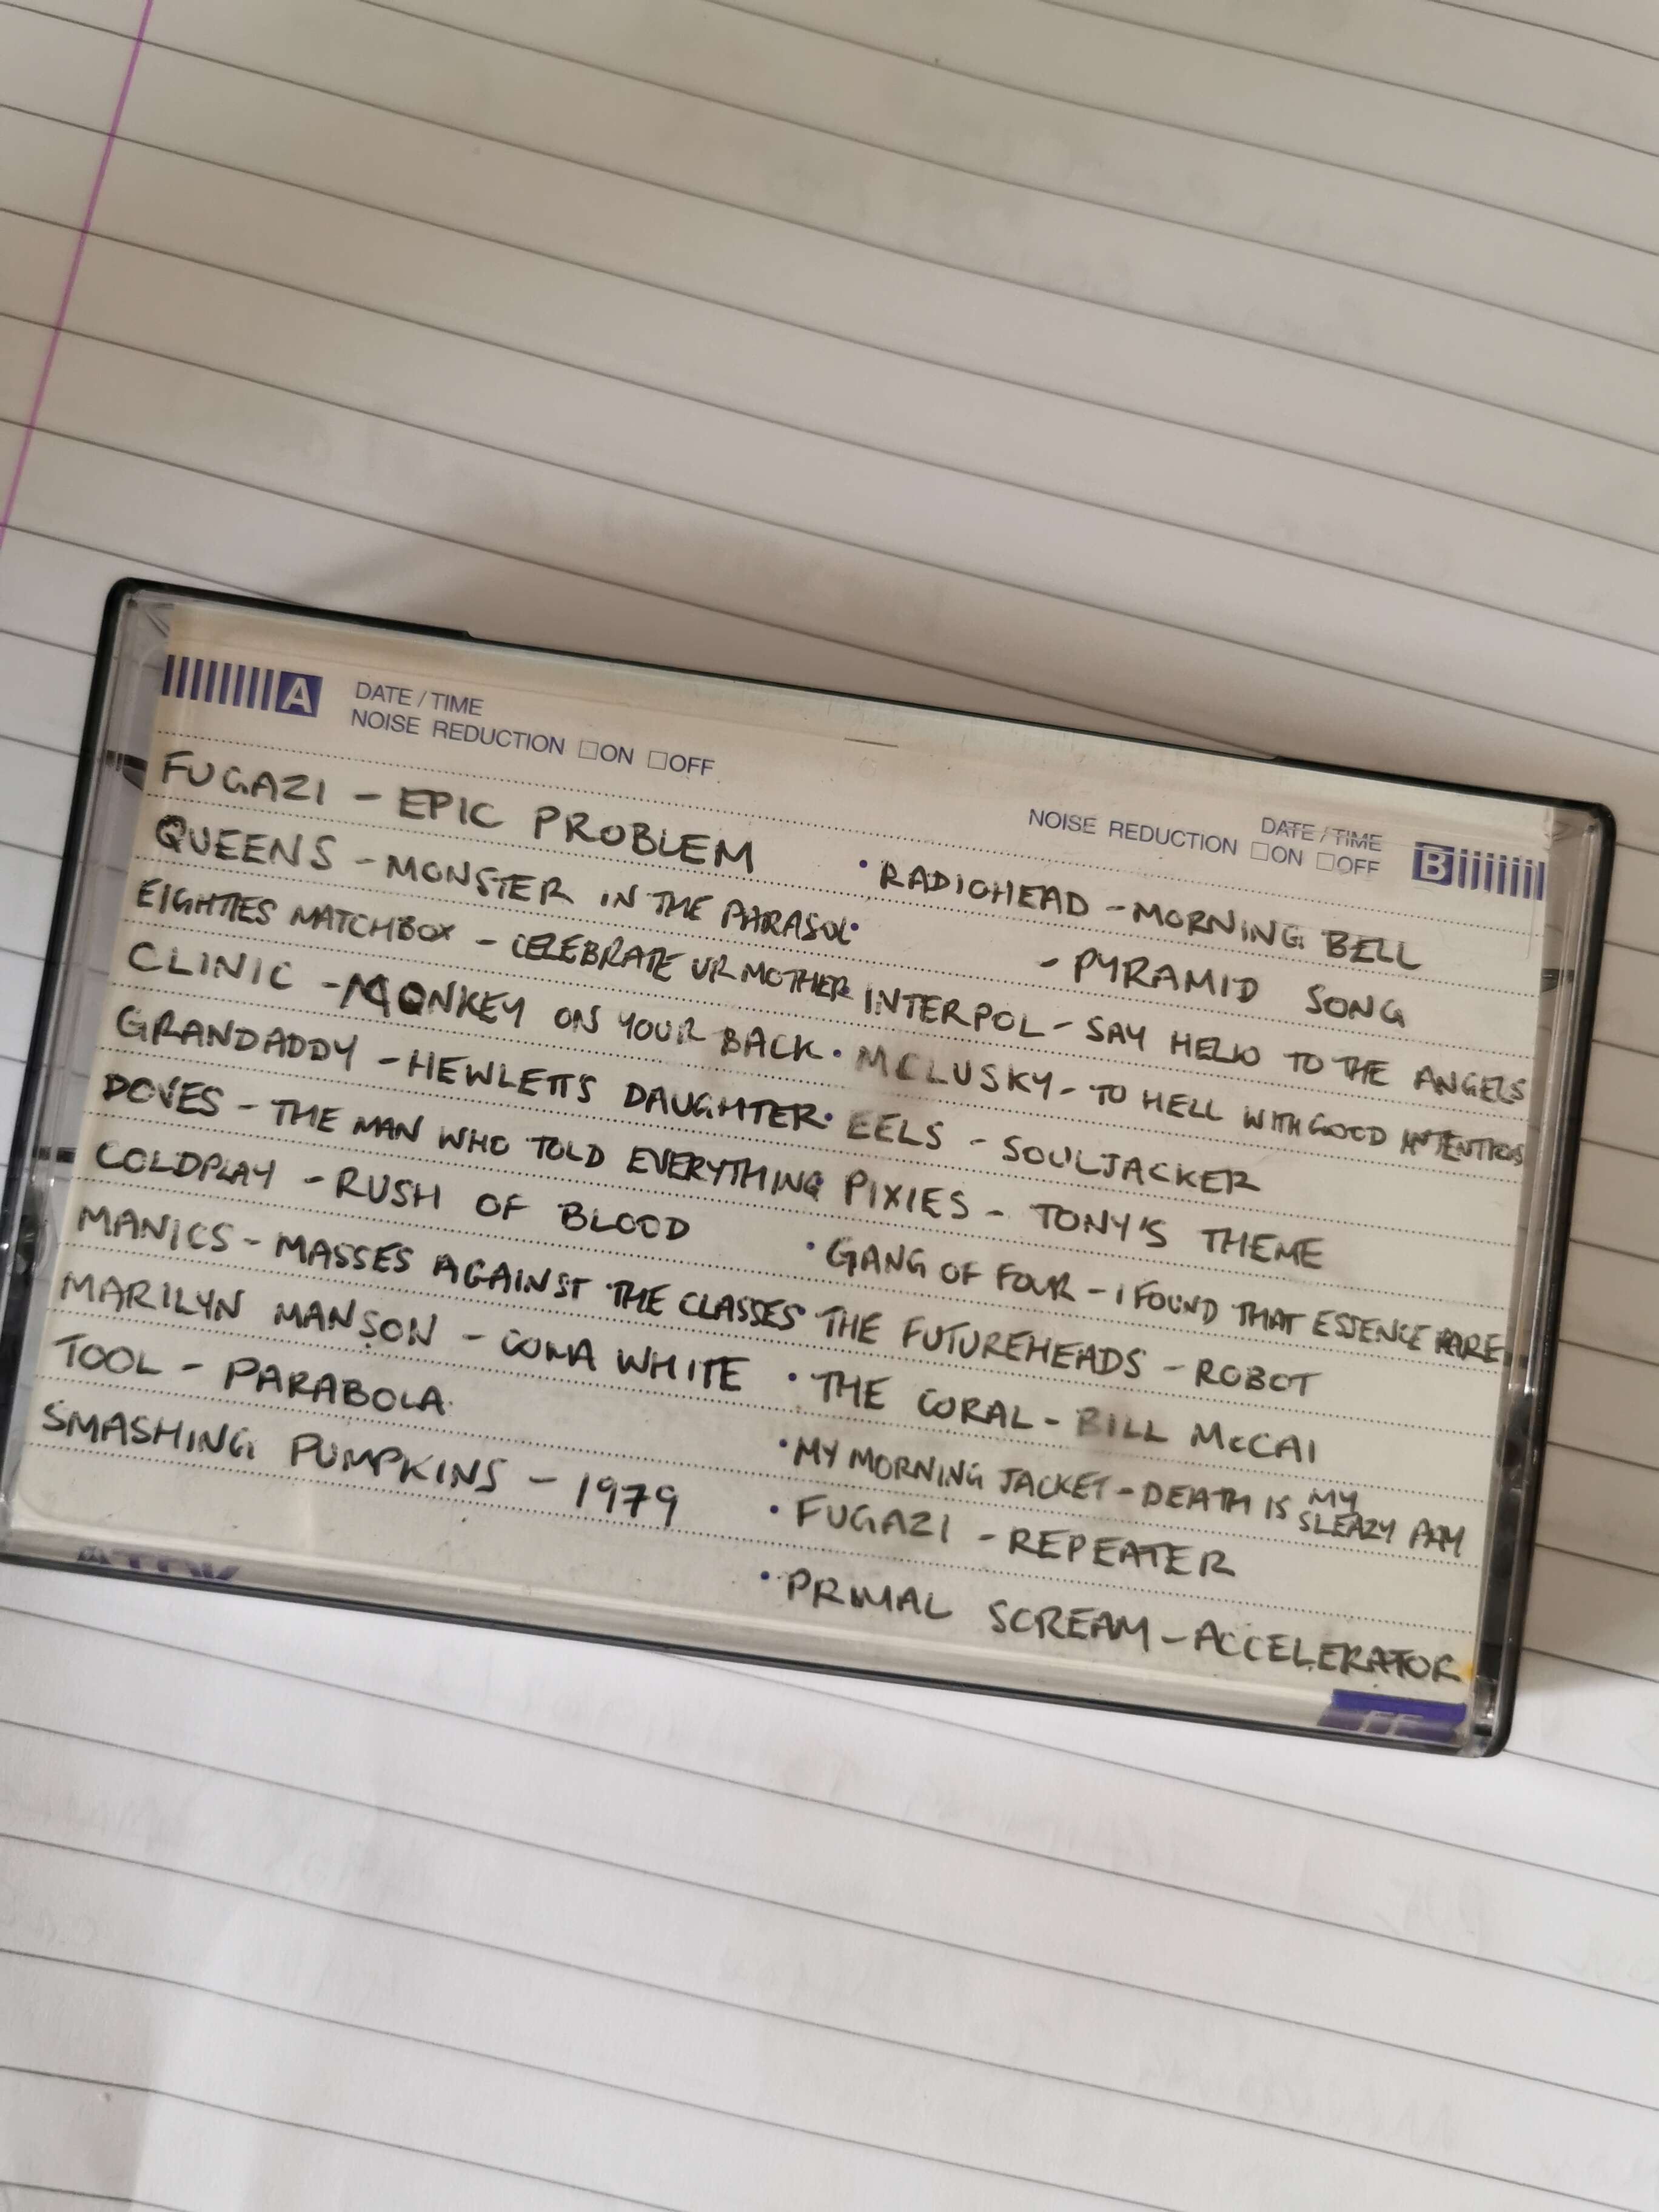 A DATE / TIME
NOISE REDUCTION □ON □OFF
FUGAZI - EPIC PROBLEM
QUEENS - MONSTER IN THE PARASOL
EIGHTIES MATCHBOX - CELEBRATE UR MOTHER
CLINIC - MONKEY ON YOUR BACK
GRANDADDY - HEWLETT'S DAUGHTER
DOVES - THE MAN WHO TOLD EVERYTHING
COLDPLAY - RUSH OF BLOOD
MANICS - MASSES AGAINST THE CLASSES
MARILYN MANSON - COMA WHITE
TOOL - PARABOLA
SMASHING PUMPKINS - 1979
DATE / TIME
NOISE REDUCTION □ON □OFF B
• RADIOHEAD - MORNING BELL
- PYRAMID SONG
• INTERPOL - SAY HELLO TO THE ANGELS
• MCLUSKY - TO HELL WITH GOOD INTENTIONS
• EELS - SOULJACKER
• PIXIES - TONY'S THEME
• GANG OF FOUR - I FOUND THAT ESSENCE RARE
• THE FUTUREHEADS - ROBOT
• THE CORAL - BILL McCAI
• MY MORNING JACKET - DEATH IS MY SLEAZY PAY
• FUGAZI - REPEATER
• PRIMAL SCREAM - ACCELERATOR
TDK